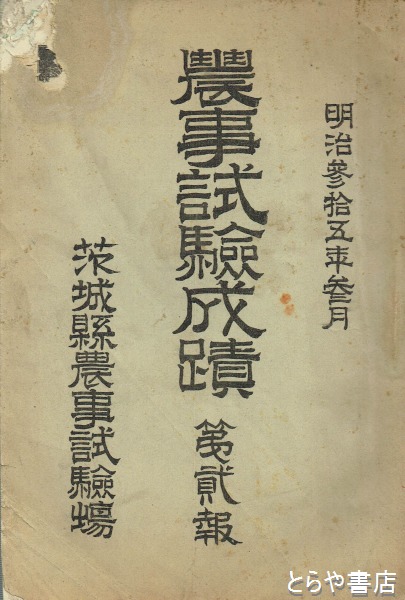 明治參拾五年叁月
農事試驗成蹟
第貳報
茨城縣農事試驗塲
とらや書店